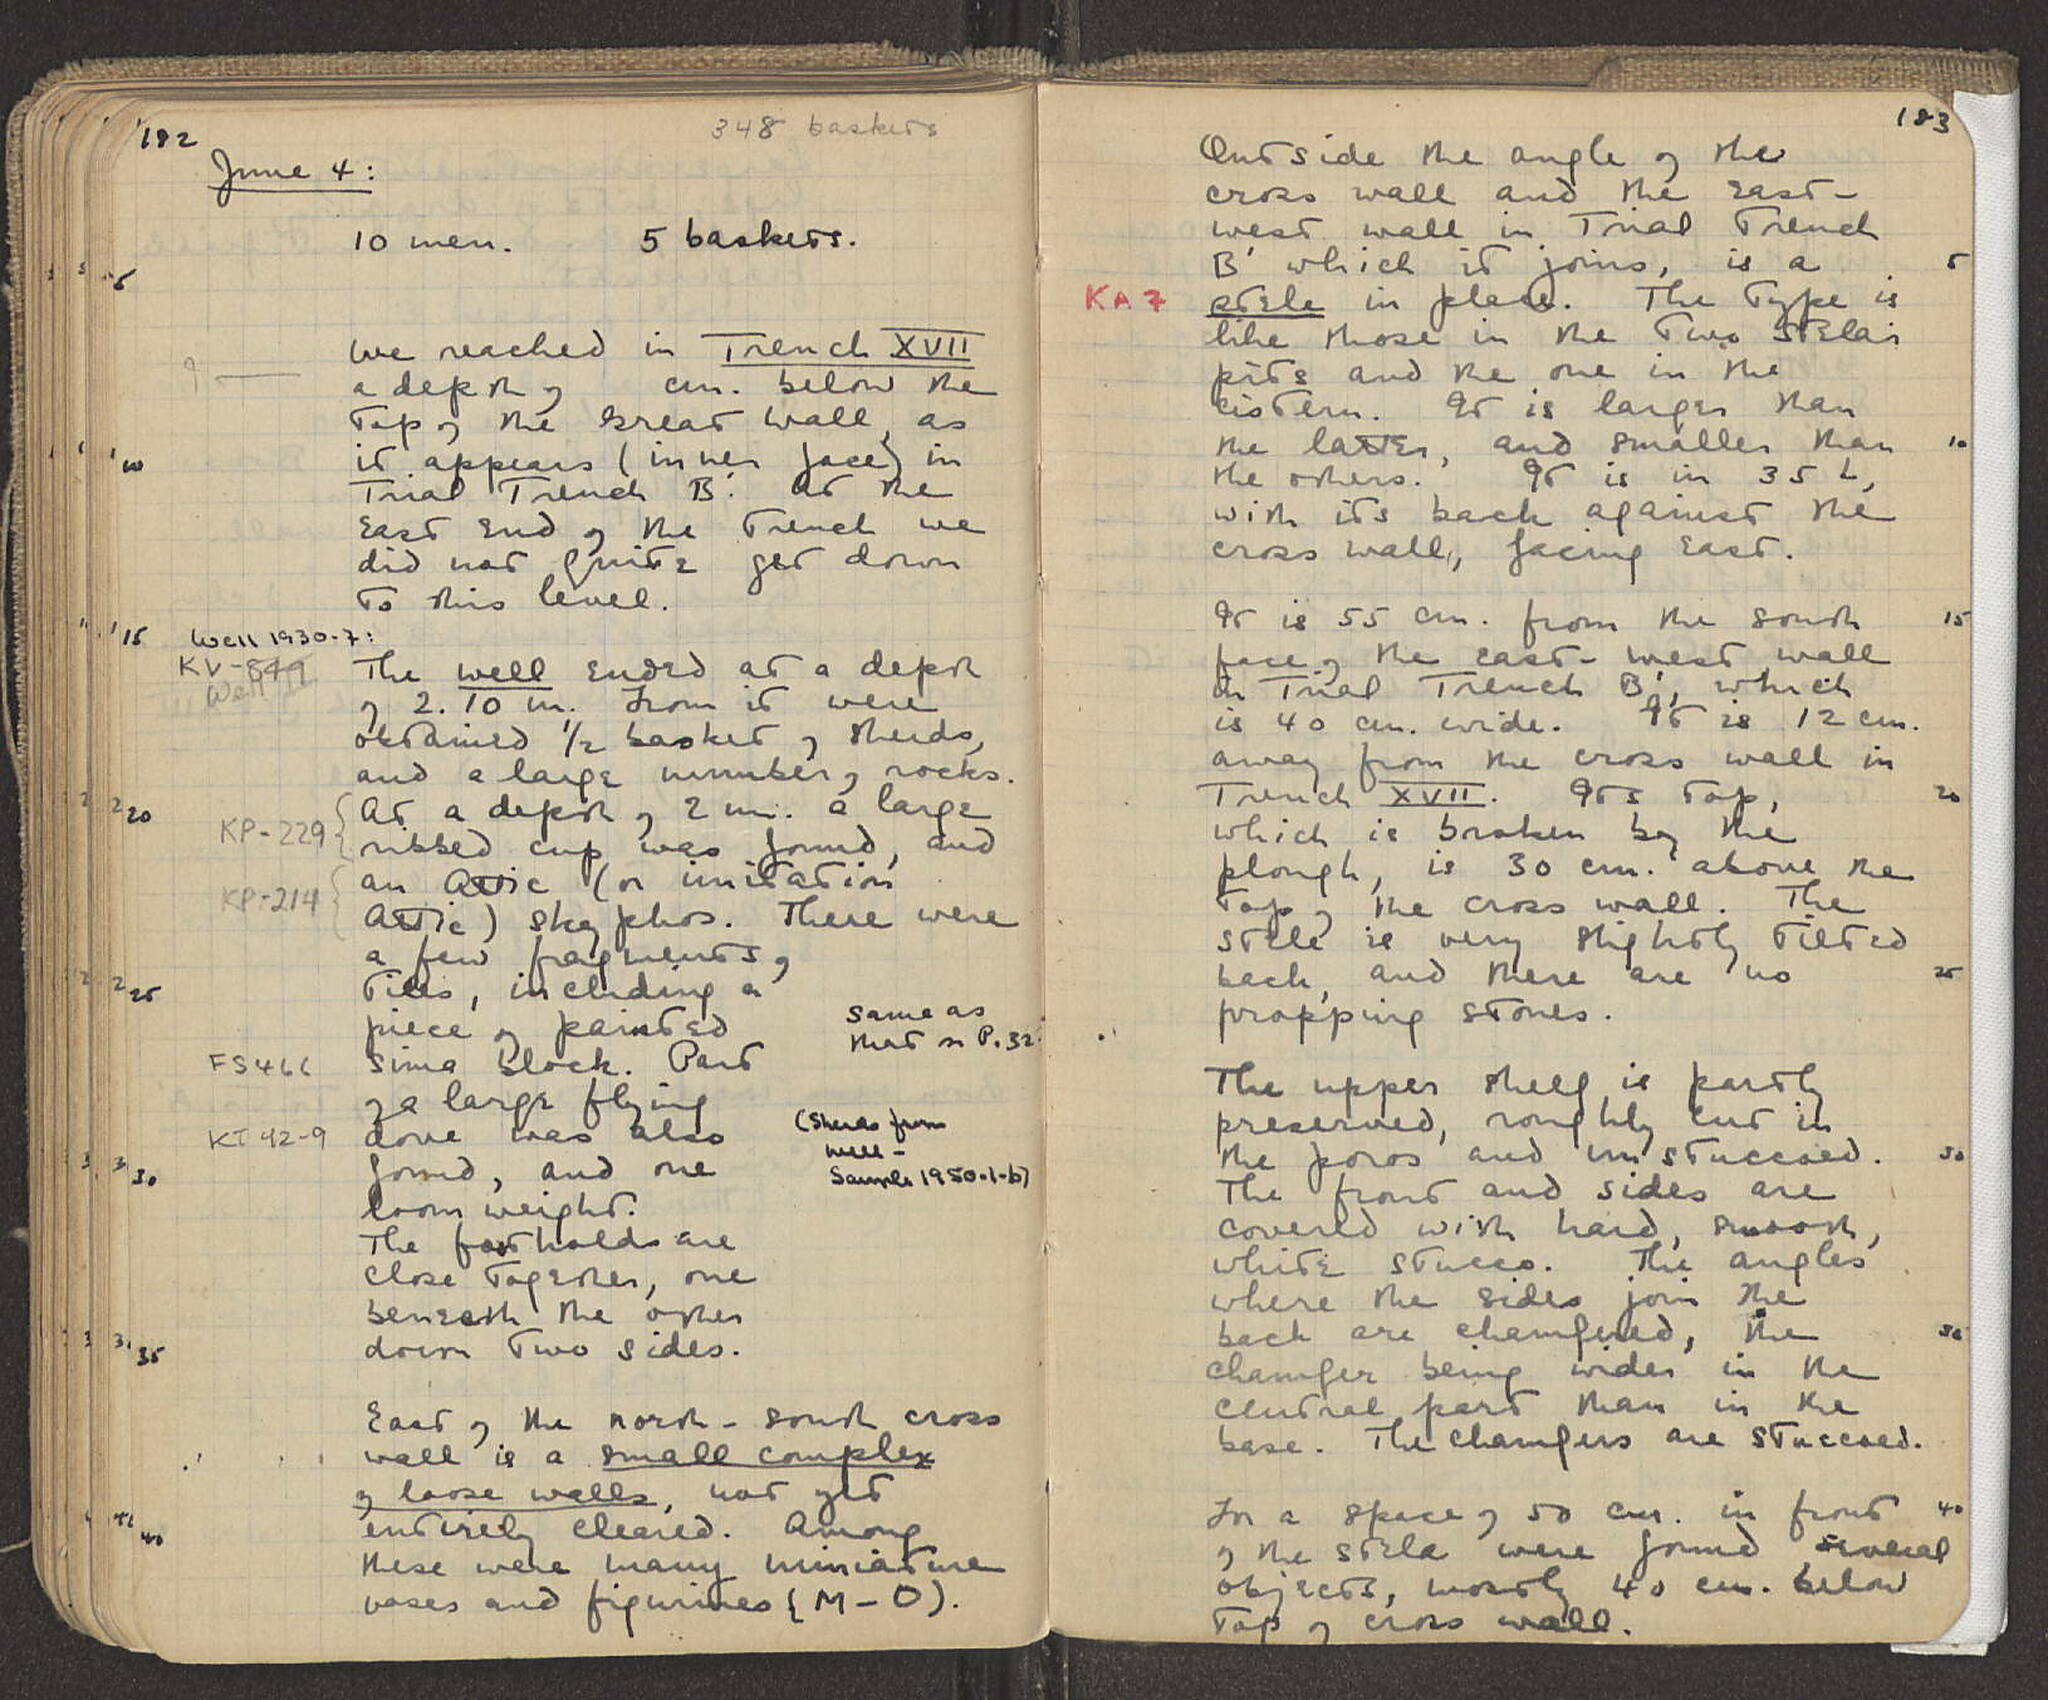 182
348 baskets
June 4:
10 men. 5 baskets.
5
We reached in Trench XVII
? —
a depth of cm. below the
top of the Great Wall, as
10
it appears (inner face) in
Trial Trench B'. At the
East End of the Trench we
did not quite get down
to this level.
15
Well 1930-7:
KV-849
Well
The well ended at a depth
of 2.10 m. From it were
obtained 1/2 basket of sherds,
and a large number of rocks.
20
At a depth of 2 m. a large
KP-229
ribbed cup was found, and
an Attic (or imitation
KP-214
Attic) skyphos. There were
a few fragments of
25
tiles, including a
piece of painted
same as
that on P. 32
FS466
sima block. Part
of a large flying
KT 42-9
dove was also
(Sherds from
well -
Sample 1950-1-b)
30
found, and one
loom weight.
The footholds are
close together, one
beneath the other
35
down two sides.
East of the north-south cross
wall is a small complex
of loose walls, not yet
40
entirely cleared. Among
these were many miniature
vases and figurines (M-O).
183
Outside the angle of the
cross wall and the East-
west wall in Trial Trench
B' which it joins, is a
5
KA 7
stele in place. The type is
like those in the two stelai
pits and the one in the
cistern. It is larger than
the latter, and smaller than
10
the others. It is in 35 L,
with its back against the
cross wall, facing East.
It is 55 cm. from the south
15
face of the east-west wall
in Trial Trench B', which
is 40 cm. wide. It is 12 cm.
away from the cross wall in
Trench XVII. Its top,
20
which is broken by the
plough, is 30 cm. above the
top of the cross wall. The
stele is very slightly tilted
back, and there are no
25
propping stones.
The upper shelf is partly
preserved, roughly cut in
the poros and unstuccoed.
30
The front and sides are
covered with hard, smooth,
white stucco. The angles
where the sides join the
back are chamfered, the
35
chamfer being wider in the
central part than in the
base. The chamfers are stuccoed.
For a space of 50 cm. in front
40
of the stela were found several
objects, mostly 40 cm. below
top of cross wall.